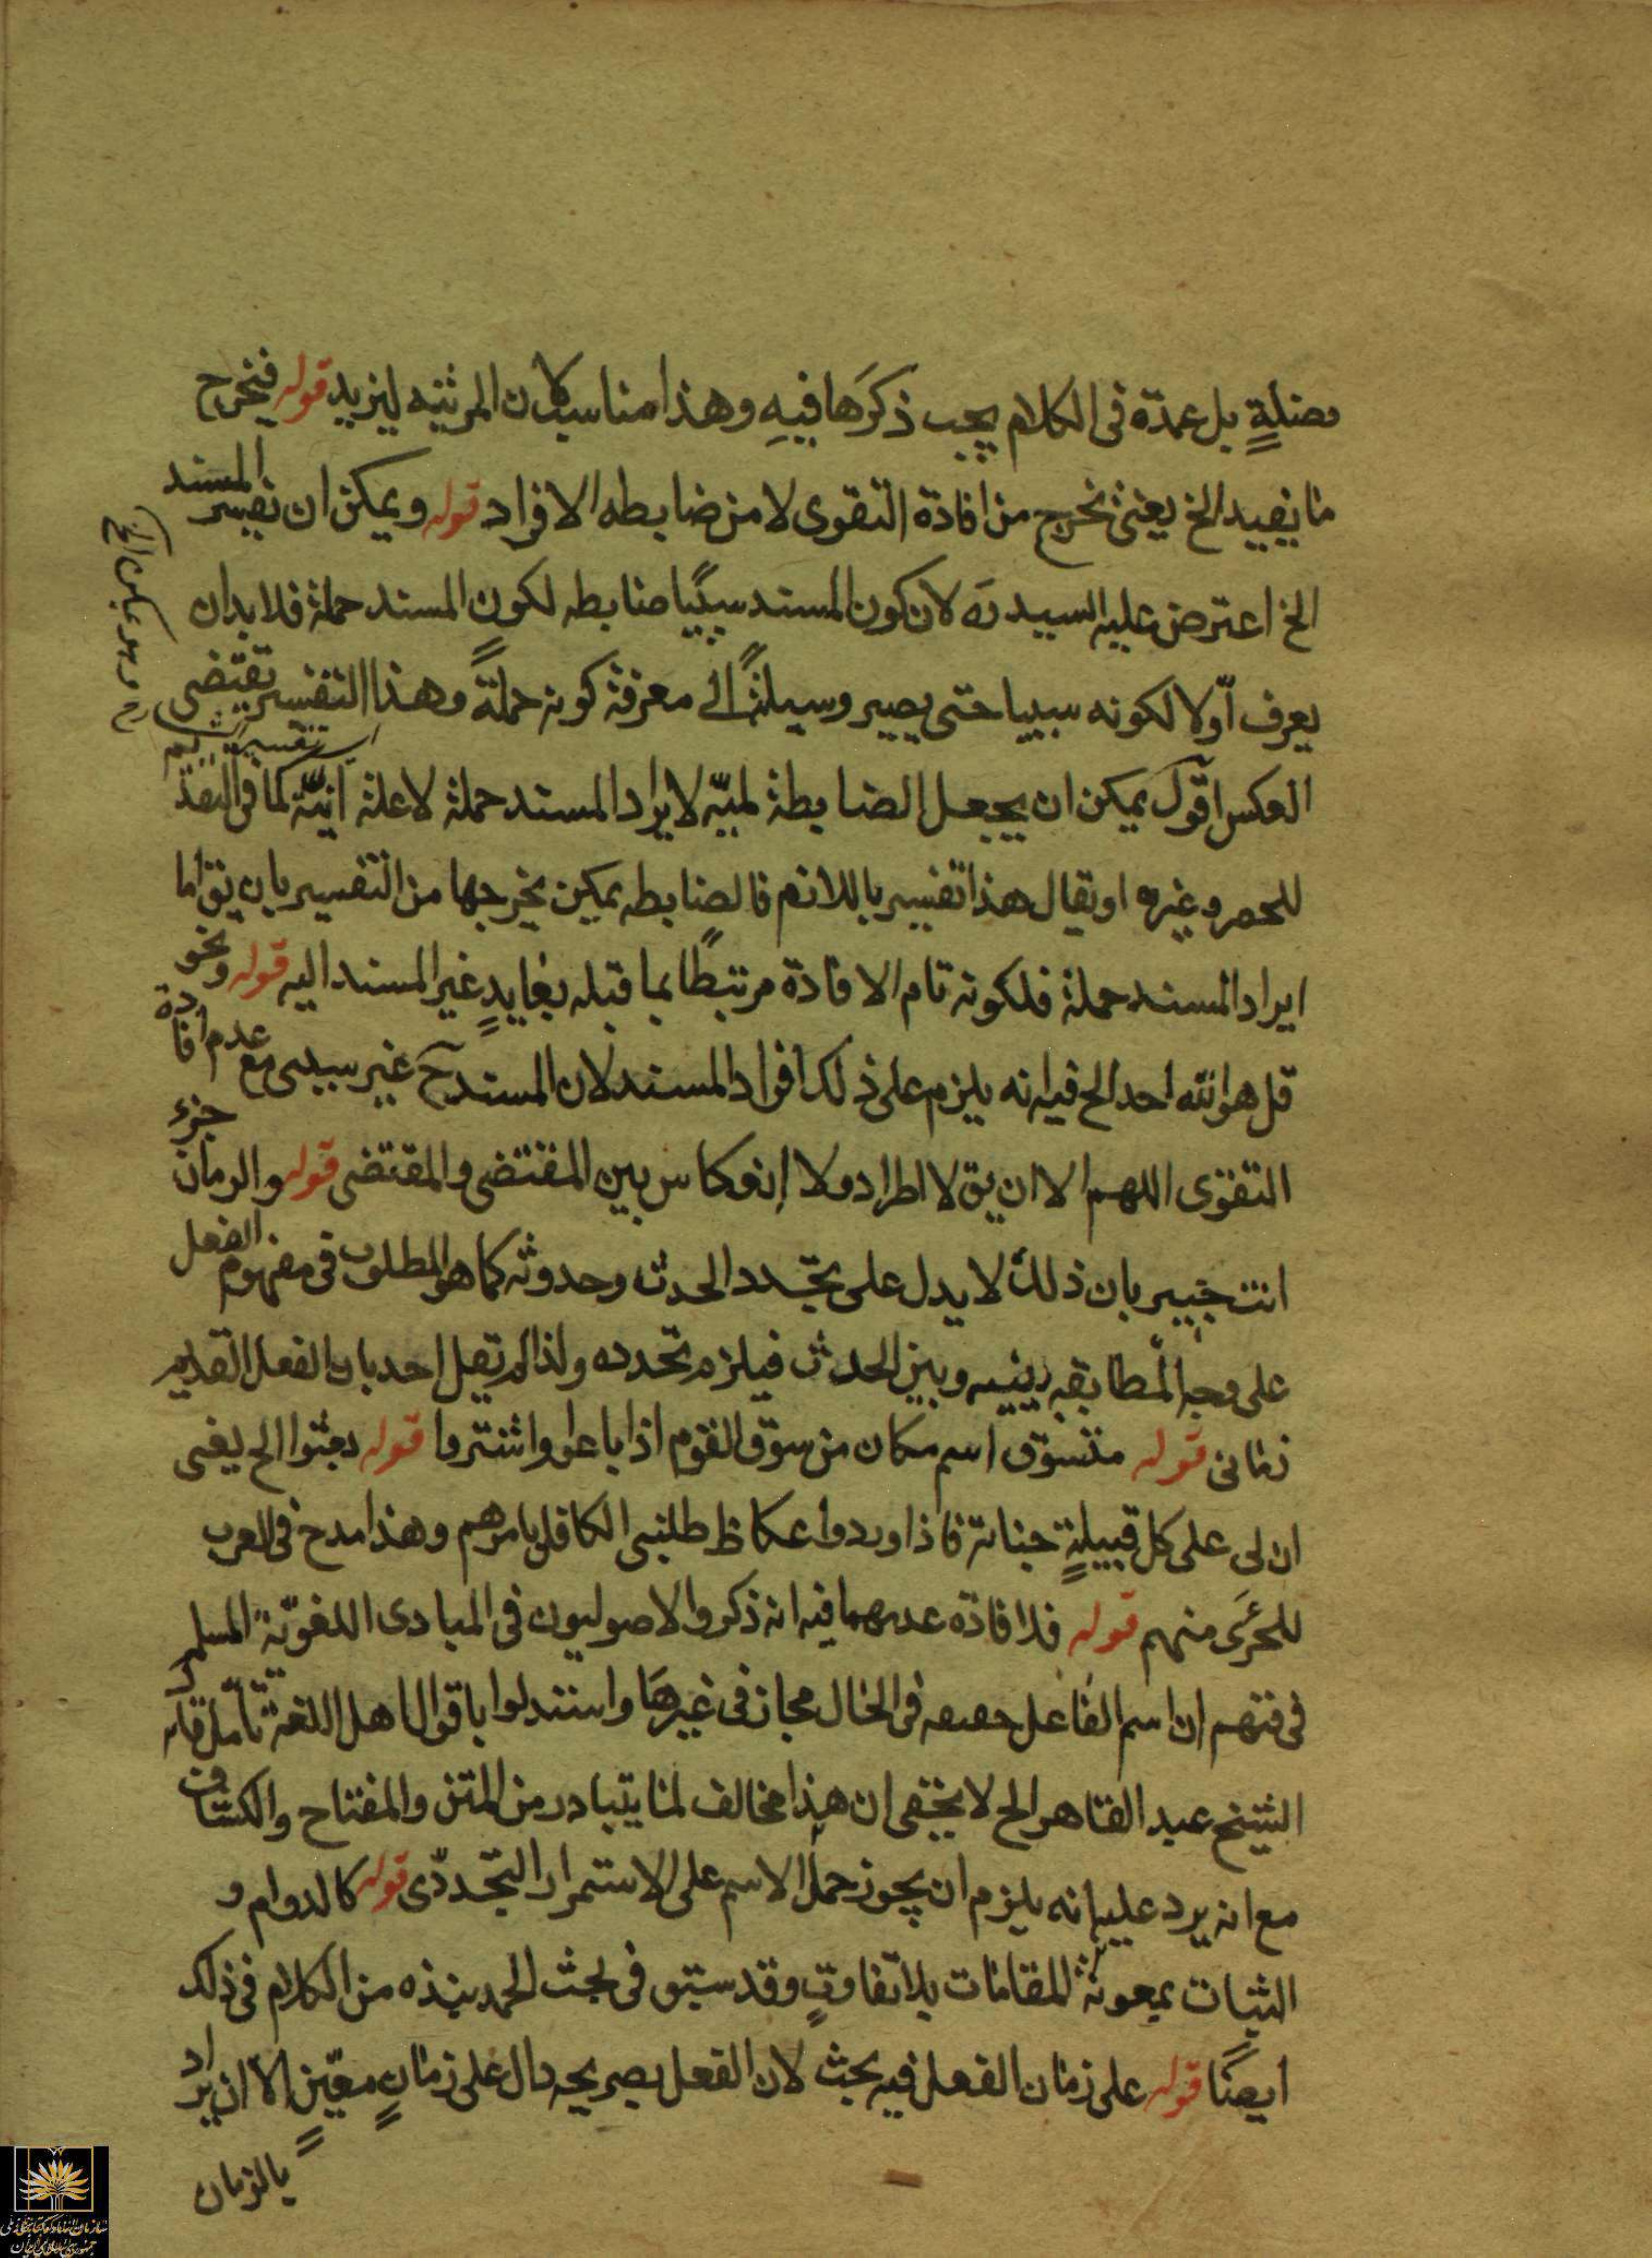 فضلةٍ بل عمدة فى الكلام يجب ذكرَها فيهِ وهذا مناسب لان المرثيه ليزيد قوله فيخرج
ما يفيد الخ يعنى تخرج من افادة التقوى لا من ضابطه الافراد قوله ويمكن ان تفسر المسند
الخ اعترض عليه السيد ره لان كون المسند سببيا ضابطه لكون المسند جملة فلا بد ان
يعرف اوّلا لكونه سببيا حتى يصير وسيلةً الى معرفة كونه جملةً وهذا التفسير تقتضى
العكس اقول يمكن ان يجعل الضابطة لميّه لايراد المسند جملة لا علة انيّة كما فى
للحصر وغيره او يقال هذا تفسير باللازم فالضابطه يمكن يخرجها من التفسير بان يق اما
ايراد المسند جملة فلكونه تام الافادة مرتبطًا بما قبله بعايدٍ غير المسند اليه قوله ونحو
قل هو الله احد الخ فيه انه يلزم على ذلك افراد المسند لان المسند ح غير سببى مع عدم افادة
التقوى اللهم الا ان يق لا اطراد ولا انعكاس بين المقتضى والمقتضى قوله والزمان جزء
انت خبير بان ذلك لا يدل على تجدد الحدث وحدوثه كما هو المطلوب فى مفهوم الفعل
على وجه المطابقه بينه وبين الحدث فيلزم تجدده ولذا لم يقل احد بان الفعل القديم
زمانى قوله متسوّق اسم مكان من سوّق القوم اذا باعوا واشتروا قوله بعثوا الخ يعنى
ان لى على كل قبيلةٍ جناية فاذا وردوا عكاظ طلبنى الكافل بامرهم وهذا مدح فى العرب
للجرَى منهم قوله فلافادة عدمهما فيه انه ذكروا الاصوليون فى المبادى اللغويّة المسلمه
فى فنهم ان اسم الفاعل حقيقه فى الحال مجاز فى غيرهَا واستدلوا باقوال اهل اللغة تامّل قوله
الشيخ عبد القاهر الخ لا يخفى ان هذا مخالف لما يتبادر من المتن والمفتاح والكشاف
مع انه يرد عليه انه يلزم ان يجوز حمل الاسم على الاستمرار التجددّى قوله كالدوام و
الثبات بمعونة المقامات بلا تفاوتٍ وقد سبق فى بحث الحمد نبذه من الكلام فى ذلك
ايضًا قوله على زمان الفعل فيه بحث لان الفعل بصريحه دال على زمانٍ معيّنٍ الا ان يراد
بالزمان